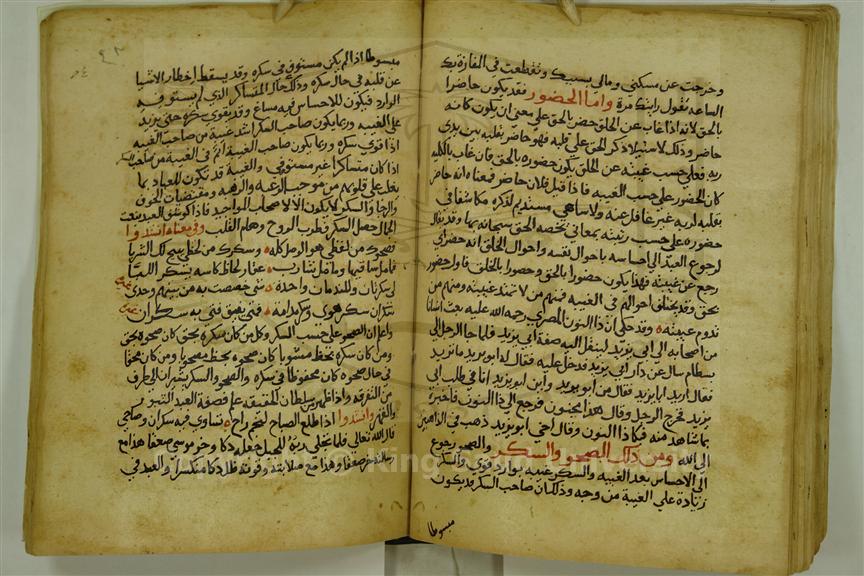 وخرجت عن مسكني ومالي بسببك وتقطعت في المفازة بك
الساعه تقول رايتك مرة واما الحضور فقد يكون حاضرا
بالحق لانه اذا غاب عن الخلق حضر بالحق علي معني ان يكون كانه
حاضر وذلك لاستيلا ذكر الحق علي قلبه فهو حاضر بقلبه بين يدي
ربه فعلي حسب غيبته عن الخلق يكون حضوره بالحق فان غاب بالكليه
كان الحضور علي حسب الغيبه فاذا قيل فلان حاضر فمعناه انه حاضر
بقلبه لربه غير غافل عنه ولا ساهي مستديم لذكره مكاشفا في
حضوره علي حسب رتبته بمعاني يخصه الحق سبحانه بها وقد يقال
لرجوع العبد الي احساسه باحوال نفسه واحوال الخلق انه حضر اي
رجع عن غيبته فهذا يكون حضورا بالحق وحضورا بالخلق فاول حضور
بحق وقد يختلف احوالهم في الغيبه فمنهم من لا تمتد غيبته ومنهم من
تدوم غيبته وقد حكي ان ذا النون المصري رحمة الله عليه بعث انسانا
من اصحابه الي ابي يزيد لينقل اليه صفة ابي يزيد فلما جا الرجل الي
بسطام سال عن دار ابي يزيد فدخل عليه فقال له ابو يزيد ما تريد
فقال اريد ابا يزيد فقال من ابو يزيد واين ابو يزيد انا في طلب ابي
يزيد فخرج الرجل وقال هذا مجنون فرجع الي ذا النون فاخبره
بما شاهد منه فبكا ذا النون وقال اخي ابو يزيد ذهب في الذاهبين
الي الله ومن ذلك الصحو والسكر والصحو رجوع
الي الاحساس بعد الغيبه والسكر غيبه بوارد قوي والسكر
زيادة علي الغيبة من وجه وذلك ان صاحب السكر قد يكون
مبسوطا
مبسوطا اذا لم يكن مستوفي في سكره وقد يسقط اخطار الاشيا
عن قلبه في حال سكره وذلك حال المتساكر الذي لم يستوفيه
الوارد فيكون للاحساس فيه مساغ وقد يقوي سكره حتي يزيد
علي الغيبه وربما يكون صاحب السكر اشد غيبة من صاحب الغيبه
اذا قوي سكره وربما يكون صاحب الغيبة اتم في الغيبة من صاحب السكر
اذا كان متساكرا غير مستوفي والغيبة قد تكون للعباد بما
يغلب علي قلوبهم من موجب الرغبه والرهبه ومقتضيات الخوف
والرجا والسكر لا يكون الا لاصحاب المواجيد فاذا كوشف العبد بنعت
الجمال حصل السكر وطرب الروح وهام القلب وفي معناه انشدوا
فصحوك من لفظي هو الوصل كله وسكرك من لحظي يبيح لك الشربا
فما مل ساقيها وما مل شارب عقار لحاظ كاسه يسكر اللبا
لي سكرتان وللندمان واحدة شي خصصت به من بينهم وحدي
سكران سكر هوي وسكر مدامة فمتي يفيق فتي به سكران
واعلم ان الصحو علي حسب السكر وكل من كان سكره بحق كان صحوه بحق
ومن كان سكره بحظ مشوبا كان صحوه بحظ مصحوبا ومن كان محقا
في حال صحوه كان محفوظا في سكره والصحو والسكر يشيران الي طرف
من التفرقه واذا ظهر من سلطان الحقيقة علم فصفة العبد الثبور
والقهر وانشدوا اذا طلع الصباح لنجم راح تساوي فيه سكران وصاحي
قال الله تعالي فلما تجلي ربه للجبل جعله دكا وخر موسي صعقا هذا مع
رسالته خر صعقا وهذا مع صلابته وقوته ظل دكا متكسرا والعبد في